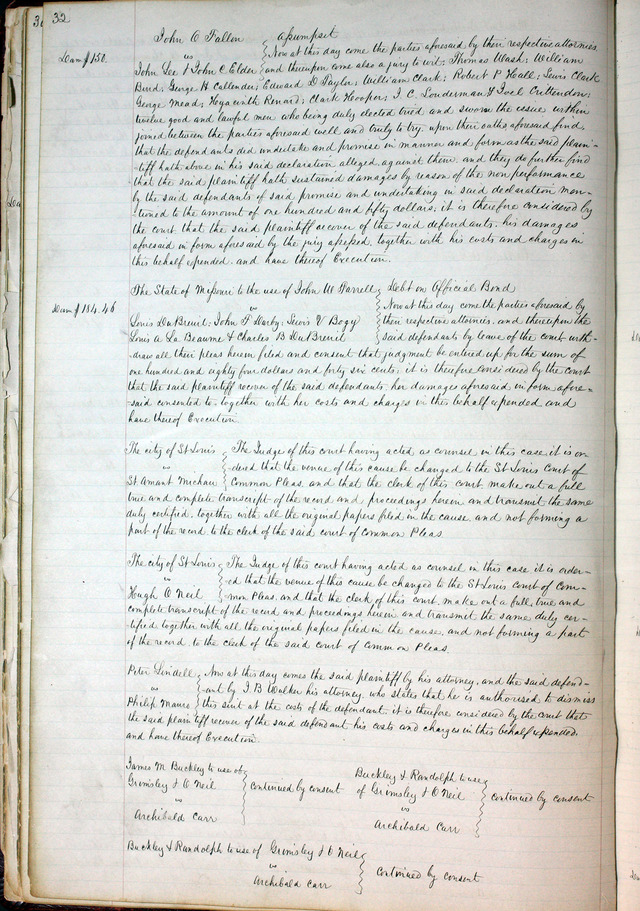 32
John O Fallon } assumpsit
vs
Dam $150. Now at this day come the parties aforesaid by their respective attornies
John Lee & John C Elder and thereupon came also a jury to wit: Thomas Wash; William
Bird; George H Callender; Edward D Taylor; William Clark; Robert P Hall; Lewis Clark
George Mead; Hyacinth Renard; Clark Hooper; I. C. Louderman & Joel Crittendon;
twelve good and lawful men who being duly elected tried and sworn the issue within
joined between the parties aforesaid well and truly to try, upon their oaths aforesaid find,
that the defendants did undertake and promise in manner and form as the said plain-
tiff hath above in his said declaration alleged against them. and they do further find
that the said plaintiff hath sustained damages by reason of the non performance
by the said defendants of said promise and undertaking in said declaration men-
tioned to the amount of one hundred and fifty dollars. it is therefore considered by
the court that the said plaintiff recover of the said defendants. his damages
aforesaid in form aforesaid by the jury assessed, together with his costs and charges in
this behalf expended. and have thereof Execution.
The State of Missouri to the use of John W Farrell } Debt on Official Bond
Dam $184.46 vs Now at this day come the parties aforesaid by
Louis DuBreuil; John F Darby; Lewis V Bogy their respective attornies. and thereupon the
Louis A La Beaume & Charles B DuBreuil said defendants by leave of the court with-
draw all their pleas herein filed and consent that judgment be entered up for the sum of
one hundred and eighty four dollars and forty six cents; it is therefore considered by the court
that the said plaintiff recover of the said defendants, her damages aforesaid in form afore-
-said consented to, together with her costs and charges in this behalf expended and
have thereof Execution.
The city of St Louis } The Judge of this court having acted as counsel in this case it is or-
vs dered that the venue of this cause be changed to the St Louis Court of
St Amant Michau Common Pleas, and that the clerk of this court make out a full
true and complete transcript of the record and proceedings herein and transmit the same
duly certified, together with all the original papers filed in the cause, and not forming a
part of the record, to the clerk of the said court of Common Pleas.
The city of St Louis } The Judge of this court having acted as counsel in this case it is order-
vs ed that the venue of this cause be changed to the St Louis Court of Com-
Hugh O Neil mon Pleas. and that the clerk of this court, make out a full, true and
complete transcript of the record and proceedings herein, and transmit the same duly cer-
tified together with all the original papers filed in the cause, and not forming a part
of the record, to the clerk of the said court of Common Pleas.
Peter Lindell } Now at this day comes the said plaintiff by his attorney, and the said defend-
vs ant by I B Walker his attorney who states that he is authorised to dismiss
Philip Maure this suit at the costs of the defendant. it is therefore considered by the court that
the said plaintiff recover of the said defendant his costs and charges in this behalf expended.
and have thereof Execution.
James M Buckley to use of
Grimsley & O Neil } continued by consent
vs
Archibald Carr
Buckley & Randolph to use
of Grimsley & O Neil } continued by consent
vs
Archibald Carr
Buckley & Randolph to use of Grimsley & O Neil
vs } continued by consent
Archibald Carr